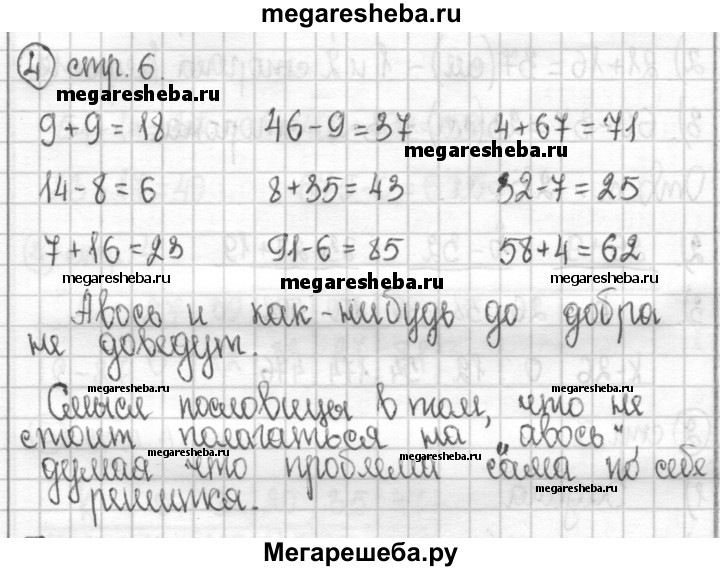 megaresheba.ru
④ стр. 6.
megaresheba.ru
9+9=18 46-9=37 4+67=71
megaresheba.ru
14-8=6 8+35=43 32-7=25
7+16=23 91-6=85 58+4=62
megaresheba.ru megaresheba.ru megaresheba.ru
Авось и как-нибудь до добра
не доведут.
megaresheba.ru megaresheba.ru
Смысл пословицы в том, что не
стоит полагаться на „авось",
megaresheba.ru megaresheba.ru
думая что проблема сама по себе
megaresheba.ru
решится.
Мегарешеба.ру